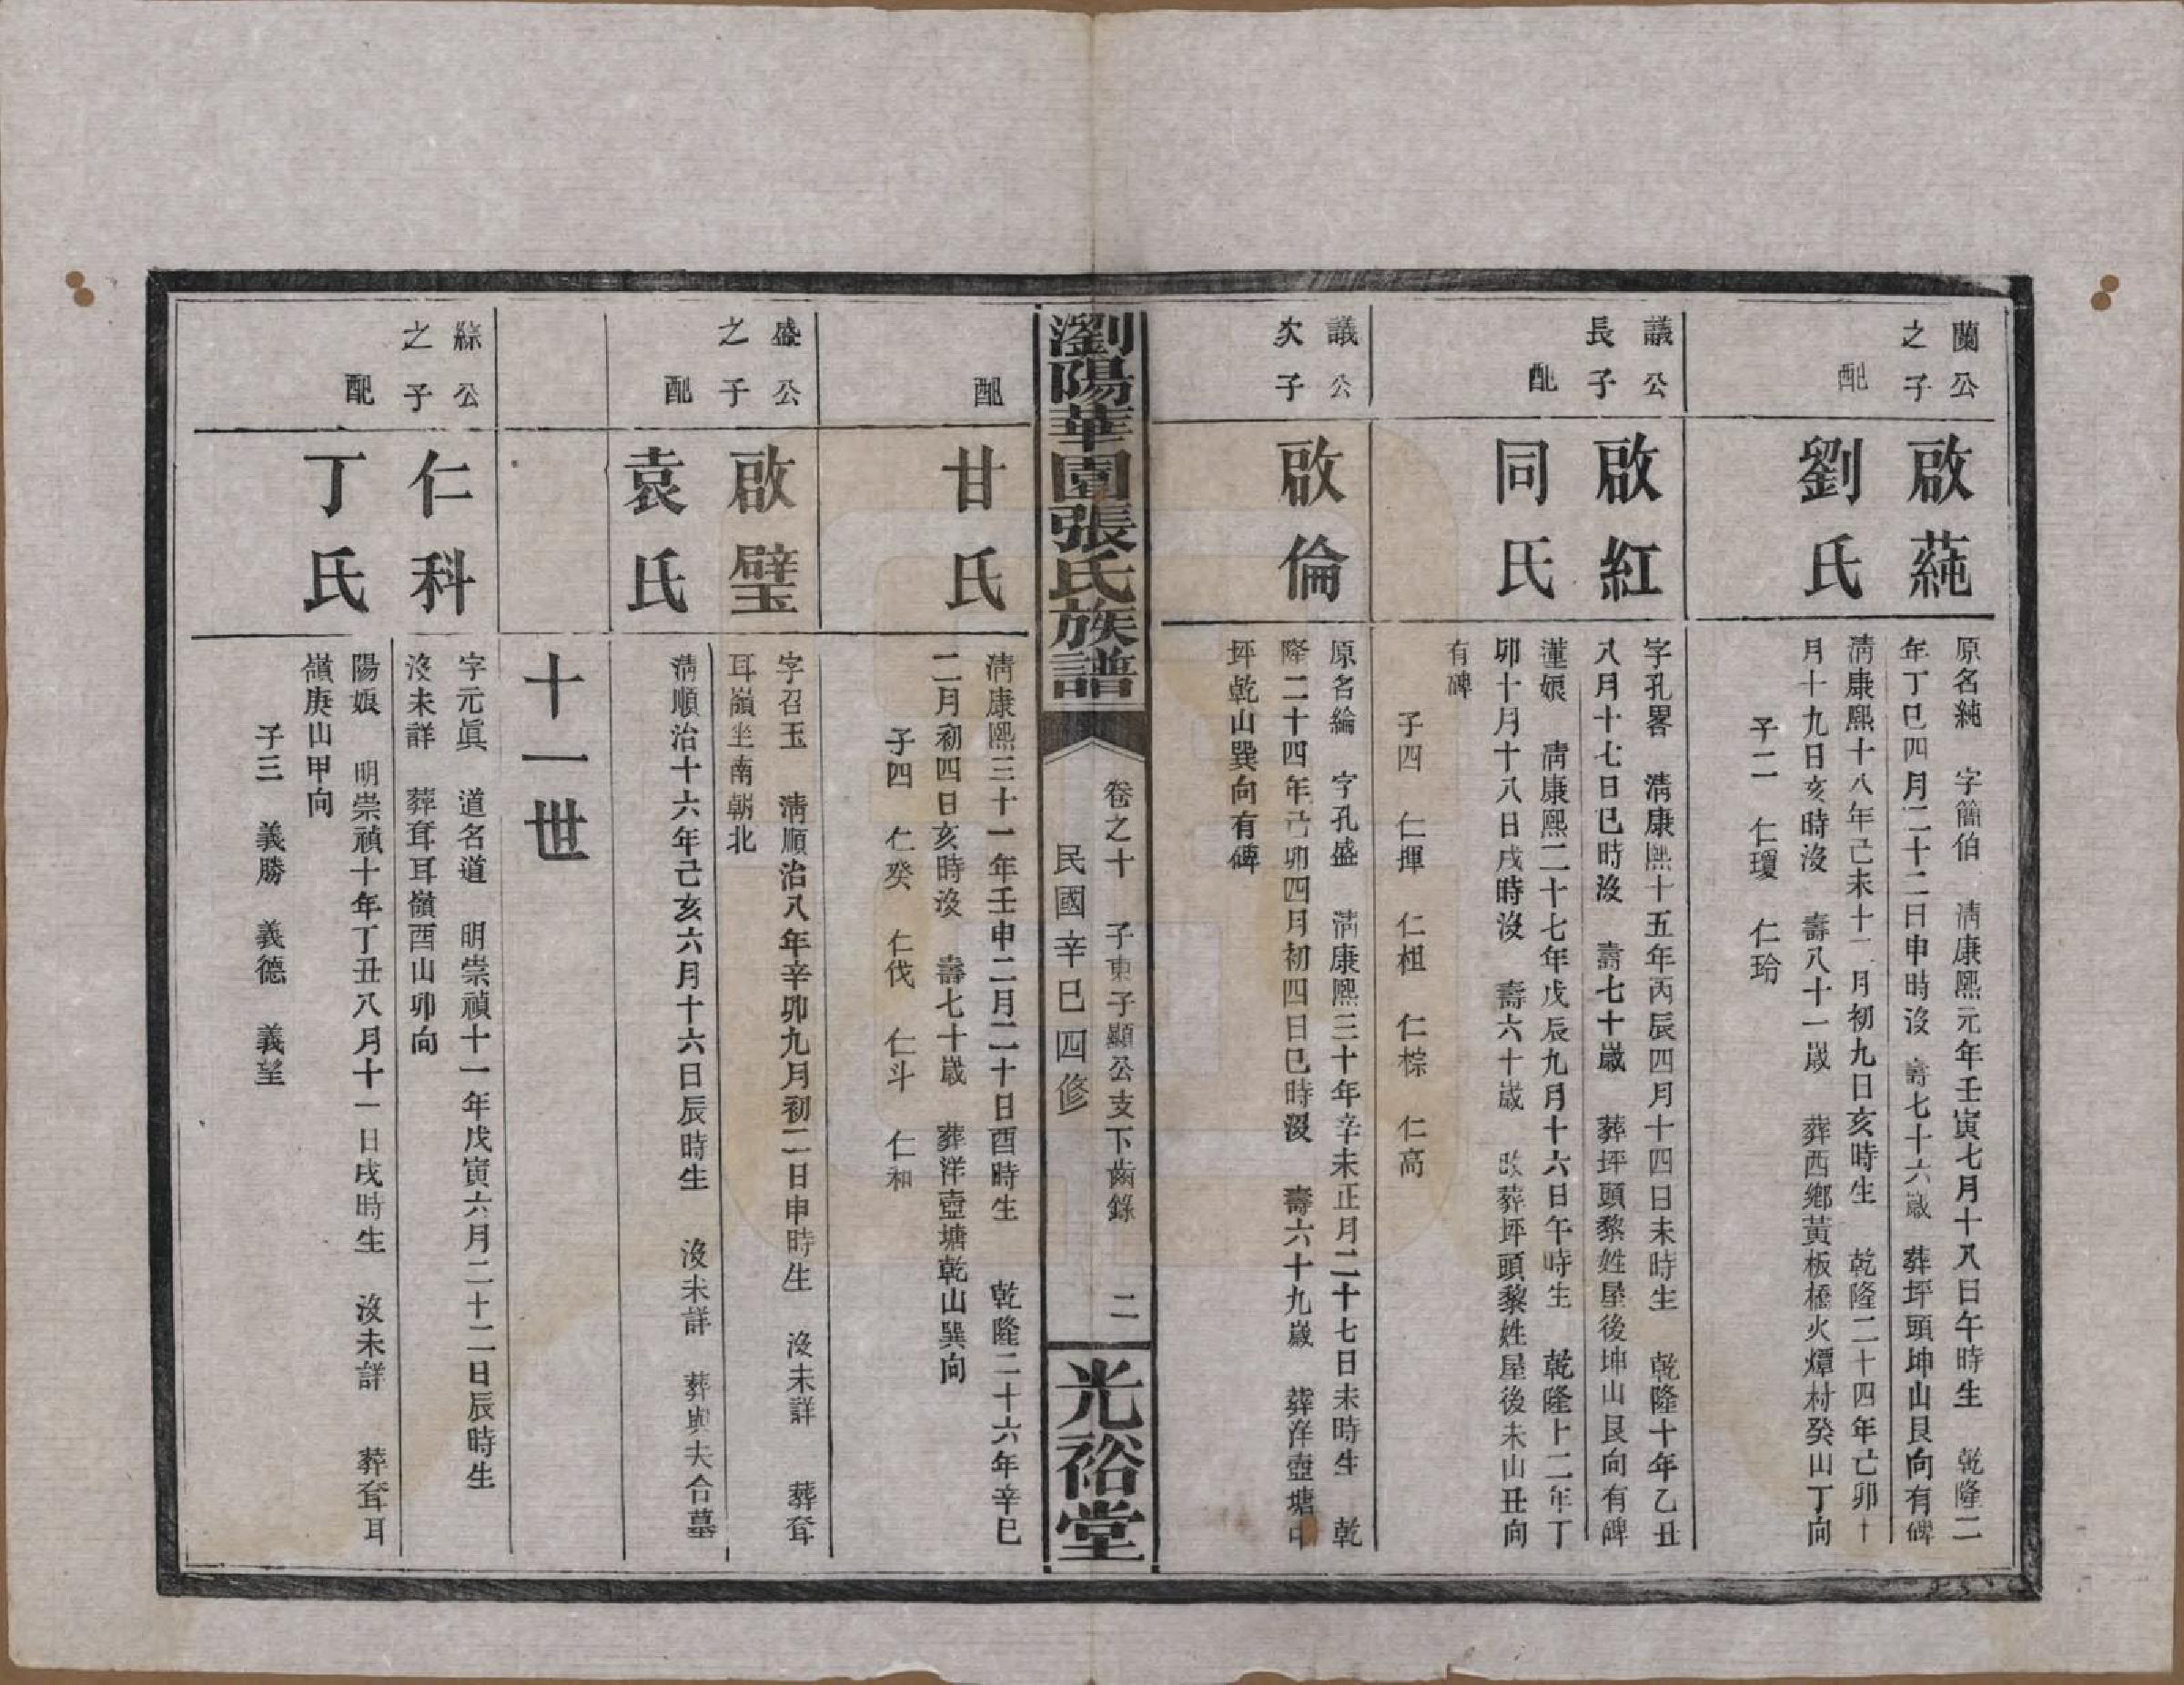 蘭公之子
啟蒓
原名純　字簡伯　淸康熙元年壬寅七月十八日午時生　乾隆二
年丁巳四月二十二日申時沒　壽七十六歲　葬坪頭坤山艮向有碑
配
劉氏
淸康熙十八年己未十一月初九日亥時生　乾隆二十四年己卯十
月十九日亥時沒　壽八十一歲　葬西鄕黃板橋火燂村癸山丁向
子二　仁瓊　仁玢
議公長子
啟紅
字孔畧　淸康熙十五年丙辰四月十四日未時生　乾隆十年乙丑
八月十七日巳時沒　壽七十歲　葬坪頭黎姓屋後坤山艮向有碑
配
同氏
蓮娘　淸康熙二十七年戊辰九月十六日午時生　乾隆十二年丁
卯十月十八日戌時沒　壽六十歲　改葬坪頭黎姓屋後未山丑向
有碑
子四　仁揮　仁柤　仁棕　仁高
議公次子
啟倫
原名綸　字孔盛　淸康熙三十年辛未正月二十七日未時生　乾
隆二十四年己卯四月初四日巳時沒　壽六十九歲　葬洋壺塘中
坪乾山巽向有碑
瀏陽華園張氏族譜
卷之十　子東子顯公支下齒錄　二
民國辛巳四修
光裕堂
配
甘氏
淸康熙三十一年壬申二月二十日酉時生　乾隆二十六年辛巳
二月初四日亥時沒　壽七十歲　葬洋壺塘乾山巽向
子四　仁癸　仁伐　仁斗　仁和
盛公之子
啟璧
字召玉　淸順治八年辛卯九月初二日申時生　沒未詳　葬耷
耳嶺坐南朝北
配
袁氏
淸順治十六年己亥六月十六日辰時生　沒未詳　葬與夫合墓
十一世
綜公之子
仁科
字元眞　道名道　明崇禎十一年戊寅六月二十二日辰時生
沒未詳　葬耷耳嶺酉山卯向
配
丁氏
陽娘　明崇禎十年丁丑八月十一日戌時生　沒未詳　葬耷耳
嶺庚山甲向
子三　義勝　義德　義望